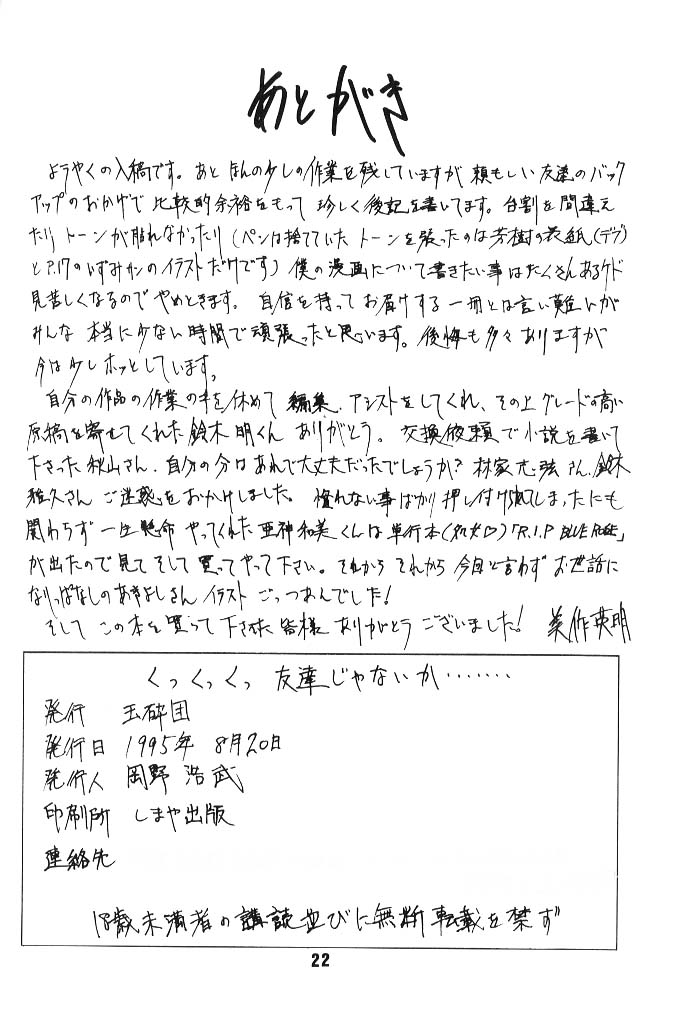 あとがき
ようやくの入稿です。あと ほんの少しの作業を残していますが 頼もしい友達のバック
アップのおかげで 比較的余裕をもって 珍しく後記を書いてます。台割を間違え
たり トーンが貼れなかったり (ペンは捨てていた トーンを張ったのは芳樹の表紙(デブ)
とP.17のいずみかのイラストだけです) 僕の漫画について書きたい事はたくさんあるケド
見苦しくなるのでやめときます。 自信を持ってお届けする一冊とは言い難いが
みんな 本当に少ない時間で頑張ったと思います。後悔も多々ありますが
今は少しホッとしています。
自分の作品の作業の手を休めて 編集、アシストをしてくれ、その上グレードの高い
原稿を寄せてくれた鈴木明くん ありがとう。 交換依頼で小説を書いて
下さった秋山さん、自分の分はあれで大丈夫だったでしょうか? 林家志弦さん、鈴木
雅久さん ご迷惑をおかけしました。 慣れない事ばかり押し付けられてしまったにも
関わらず 一生懸命 やってくれた 亜神和美くんは 単行本(処女♡)「R.I.P BLUE ROSE」
が出たので見て そして 買ってやって下さい。それから それから 今回と言わず お世話に
なりっぱなしのあきよしさん イラスト ごっつぁんでした!
そして この本を買って下された 皆様 ありがとう ございました! 美作英明
くっくっくっ 友達じゃないか・・・・・・・
発行 玉砕団
発行日 1995年 8月20日
発行人 岡野 浩武
印刷所 しまや出版
連絡先
18歳未満者の講読並びに無断転載を禁ず
22